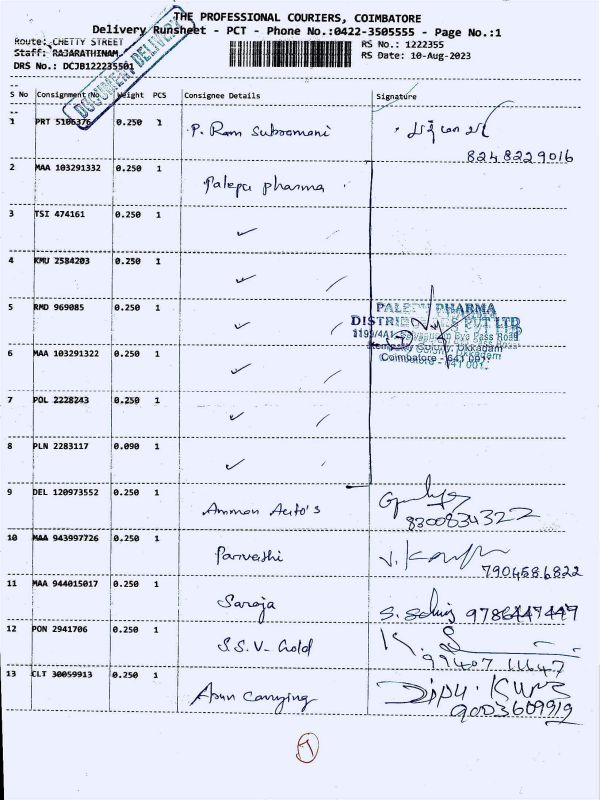 THE PROFESSIONAL COURIERS, COIMBATORE
Delivery Runsheet - PCT - Phone No.:0422-3505555 - Page No.:1
Route: CHETTY STREET
RS No.: 1222355
Staff: RAJARATHINAM
RS Date: 10-Aug-2023
DRS No.: DCJB122235501
DOCUMENT DELIVERY
S No Consignment No Weight PCS Consignee Details Signature
1 PRT 5106376 0.250 1 P. Ram Subromani
8248229016
2 MAA 103291332 0.250 1 Palepu pharma
3 TSI 474161 0.250 1 ✓
4 KMU 2584203 0.250 1 ✓
5 RMD 969085 0.250 1 ✓
PALEPU PHARMA
DISTRIBUTORS PVT LTD
Bye Pass Road
Colony, Ukkadam
Coimbatore - 641 001.
6 MAA 103291322 0.250 1 ✓
7 POL 2228243 0.250 1 ✓
8 PLN 2283117 0.090 1 ✓
9 DEL 120973552 0.250 1 Amman Auto's
8300834322
10 MAA 943997726 0.250 1 Parvathi
7904586822
11 MAA 944015017 0.250 1 Saroja 9786447449
12 PON 2941706 0.250 1 S.S.V- Gold
99407 11647
13 CLT 30059913 0.250 1 Arun Carrying
9003609919